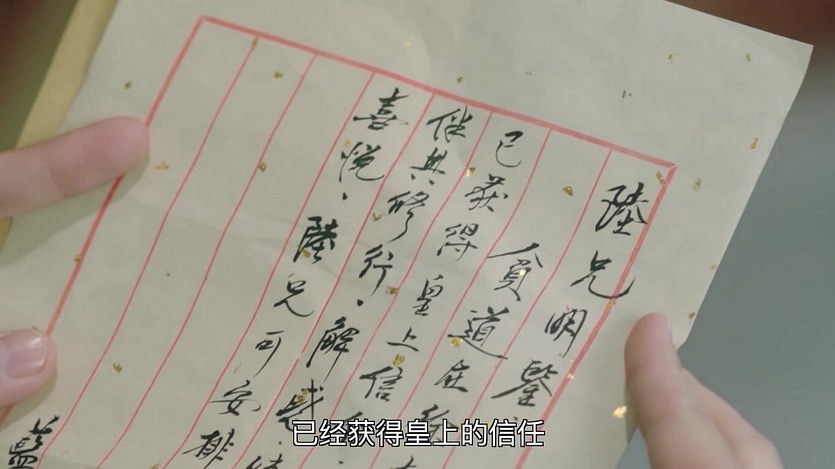 陸兄明鑒,
貧道在
已获得皇上信
伴其修行,解惑,
喜悅,陸兄可安排
藍
已经获得皇上的信任